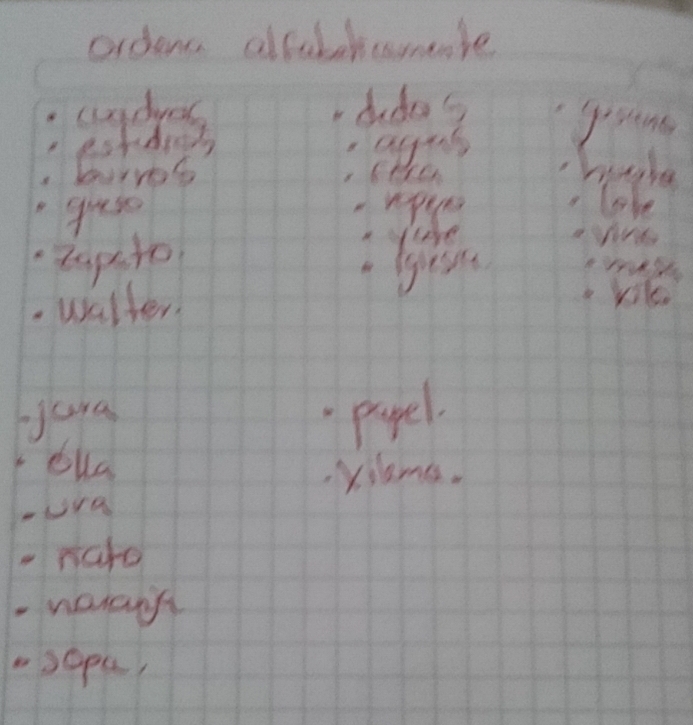 Ordena alfabeticamente
• cuadros
• estudios
• burros
• queso
• zapato.
• walter.
• dados
• aguas
• yate
• Iglesia
• gusano
• lote
• vino
• mesa
• kilo
- jarra
• olla
- uva
- nato
- naranja
- sopa,
• papel.